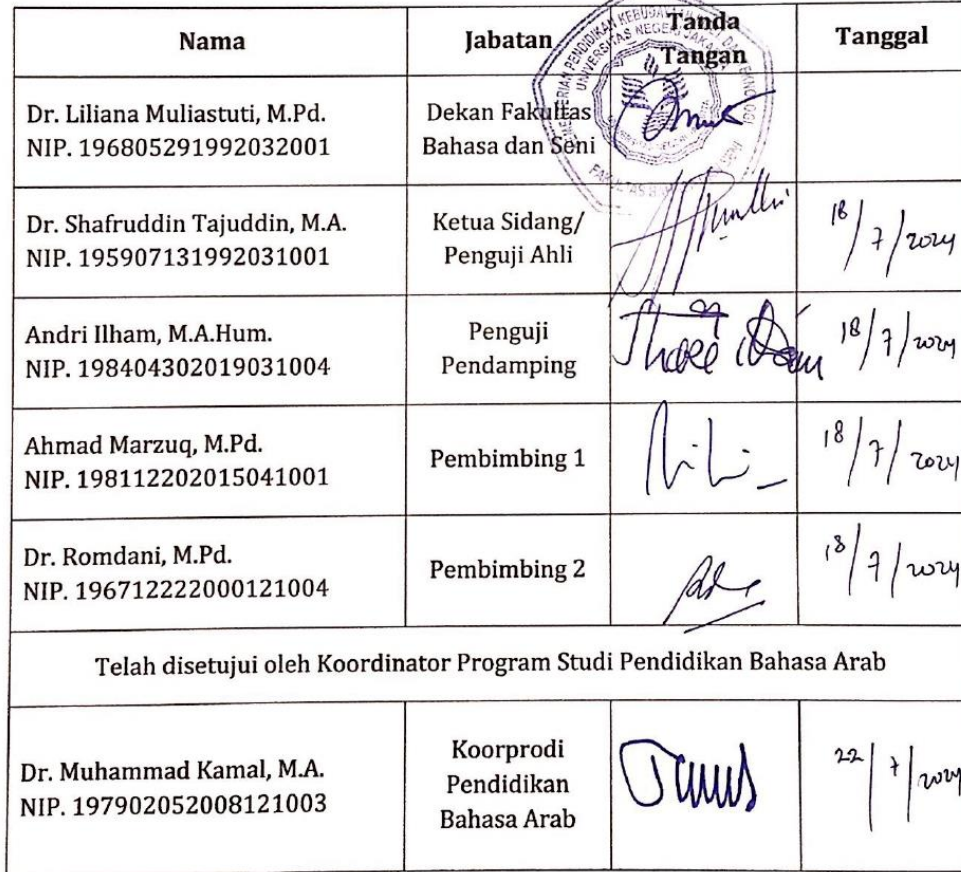 Nama
Jabatan
Tanda
Tangan
Tanggal
Dr. Liliana Muliastuti, M.Pd.
NIP. 196805291992032001
Dekan Fakultas
Bahasa dan Seni
UNIVERSITAS NEGERI JAKARTA
Dr. Shafruddin Tajuddin, M.A.
NIP. 195907131992031001
Ketua Sidang/
Penguji Ahli
18/7/2024
Andri Ilham, M.A.Hum.
NIP. 198404302019031004
Penguji
Pendamping
18/7/2024
Ahmad Marzuq, M.Pd.
NIP. 198112202015041001
Pembimbing 1
18/7/2024
Dr. Romdani, M.Pd.
NIP. 196712222000121004
Pembimbing 2
18/7/2024
Telah disetujui oleh Koordinator Program Studi Pendidikan Bahasa Arab
Dr. Muhammad Kamal, M.A.
NIP. 197902052008121003
Koorprodi
Pendidikan
Bahasa Arab
22/7/2024